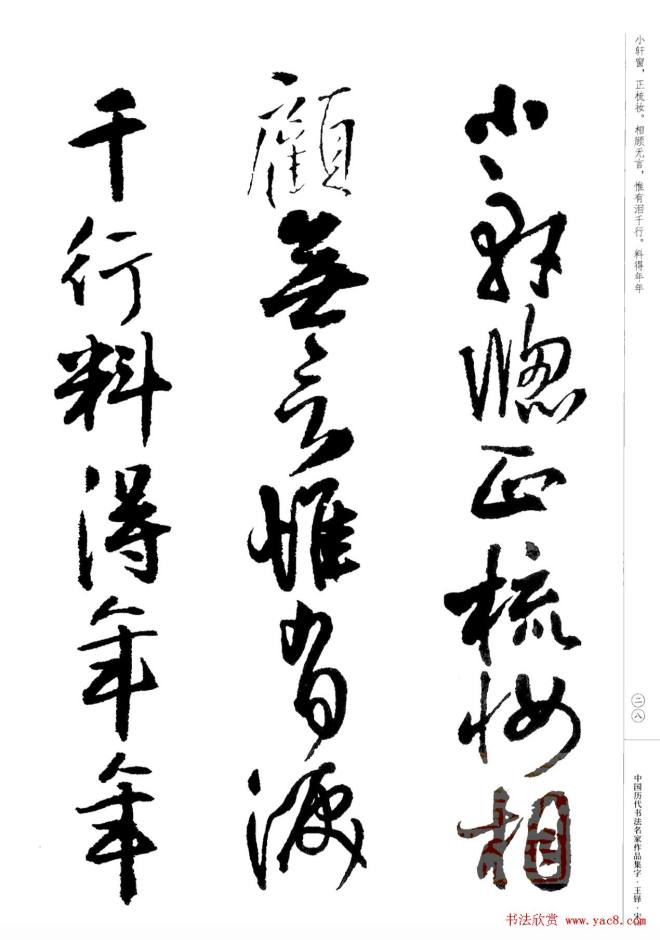 小轩窗，正梳妆。相顾无言，惟有泪千行。料得年年
小軒窗正梳妝相
顧無言惟有淚
千行料得年年
二八
中国历代书法名家作品集字·王铎·宋
书法欣赏 www.yac8.com